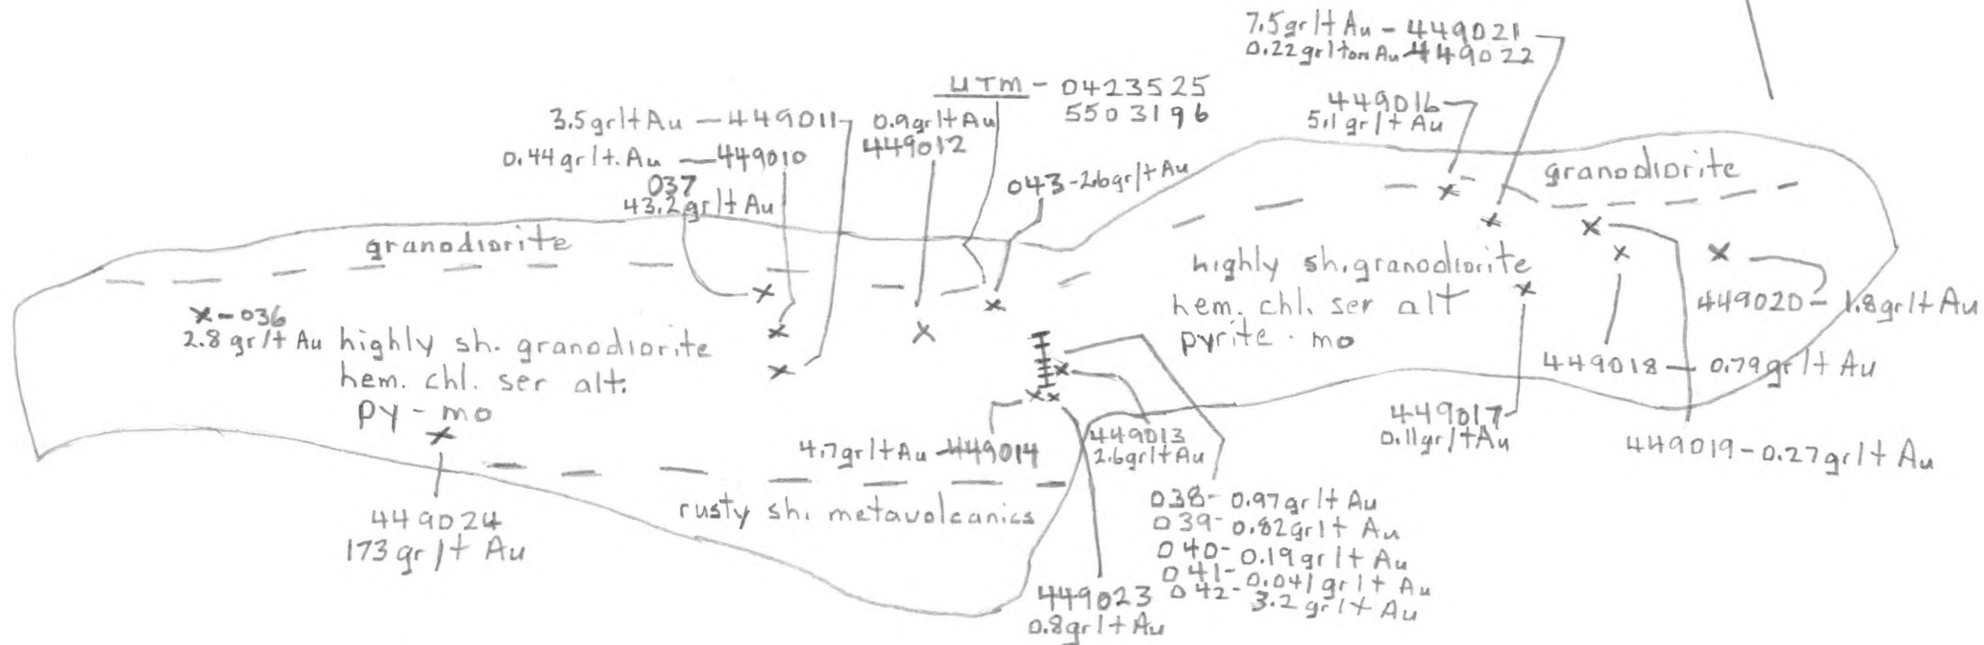 7.5gr/t Au - 449021
0.22gr/ton Au 449022
UTM - 0423525
5503196
449016
5.1gr/t Au
3.5gr/t Au - 449011
0.9gr/t Au
449012
0.44gr/t. Au - 449010
037
43.2gr/t Au
043-2.6gr/t Au
granodiorite
granodiorite
x-036
2.8 gr/t Au
highly sh. granodiorite
hem. chl. ser alt.
py - mo
highly sh. granodiorite
hem. chl. ser alt
pyrite . mo
449020 - 1.8gr/t Au
449018 - 0.79gr/t Au
449017
0.11gr/t Au
449019-0.27gr/t Au
4.7gr/t Au -449014
449013
2.6gr/t Au
rusty sh. metavolcanics
449024
173 gr/t Au
038- 0.97gr/t Au
039- 0.82gr/t Au
040- 0.19gr/t Au
041- 0.041gr/t Au
042- 3.2gr/t Au
449023
0.8gr/t Au